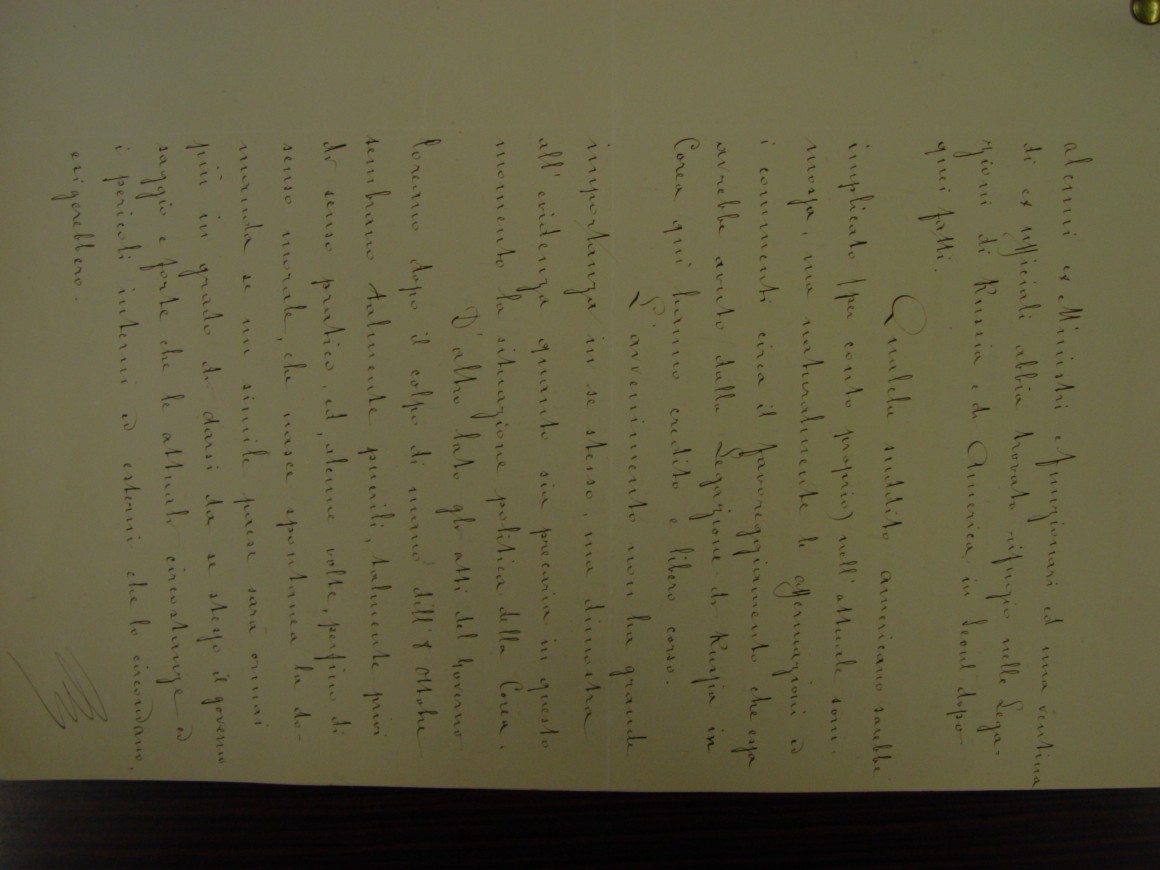 alcuni ex Ministri e funzionari ed una ventina
di ex ufficiali abbia trovato rifugio nelle Lega-
zioni di Russia e di America in Seoul dopo
quei fatti.
Qualche suddito americano sarebbe
implicato (per conto proprio) nell'attuale som-
mossa, ma naturalmente le affermazioni ed
i commenti circa il favoreggiamento che essa
avrebbe avuto dalla Legazione di Russia in
Corea quì hanno credito e libero corso.
L'avvenimento non ha grande
importanza in se stesso, ma dimostra
all'evidenza quanto sia precaria in questo
momento la situazione politica della Corea.
D'altro lato gli atti del Governo
Coreano dopo il colpo di mano dell'8 Ottobre
sembrano talmente puerili, talmente privi
di senso pratico, ed, alcune volte, perfino di
senso morale, che nasce spontanea la do-
manda se un simile paese sarà ormai
più in grado di darsi da se stesso il governo
saggio e forte che le attuali circostanze ed
i pericoli interni ed esterni che lo circondano,
esigerebbero.